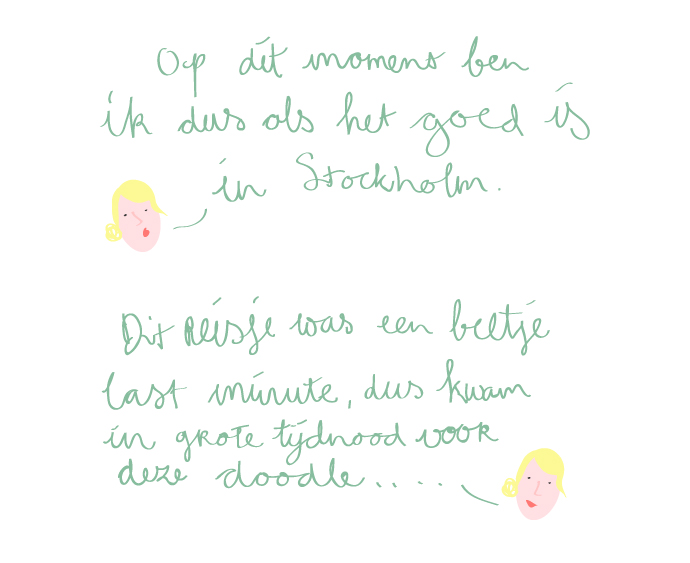 Op dit moment ben
ik dus als het goed is
in Stockholm.
Dit reisje was een beetje
last minute, dus kwam
in grote tijdnood voor
deze doodle.....